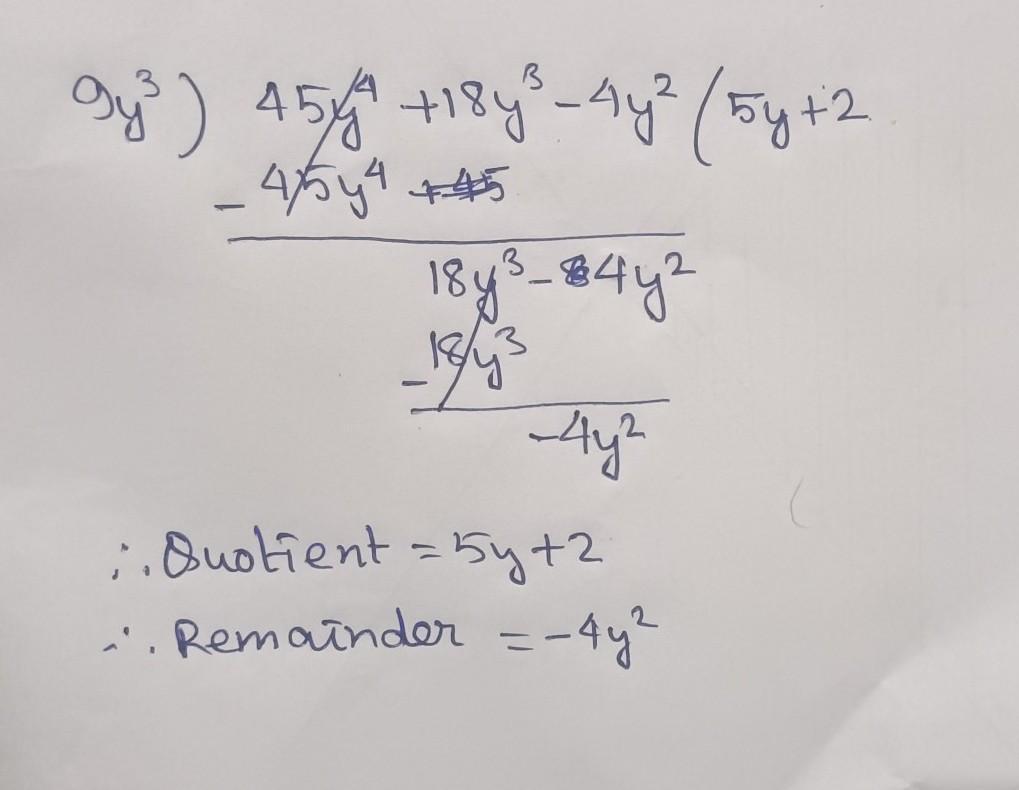 9y³) 45y⁴ +18y³ -4y² (5y+2
- 45y⁴
18y³ - 4y²
- 18y³
-4y²
∴ Quotient = 5y+2
∴ Remainder = -4y²